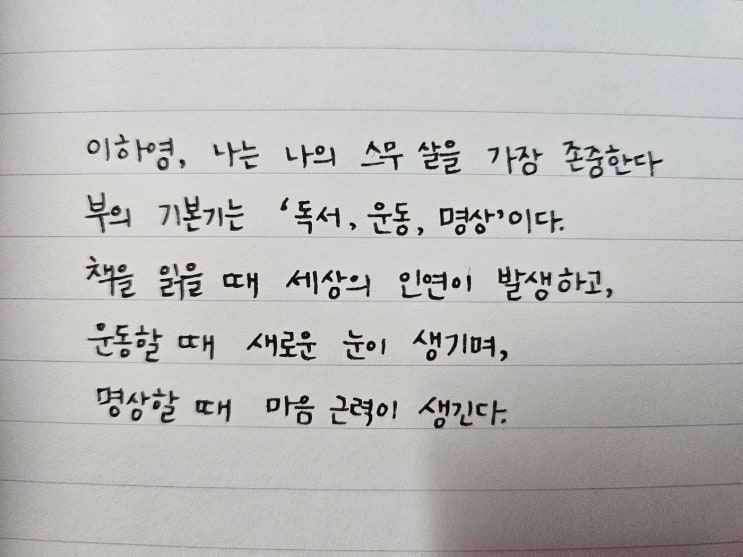 이하영, 나는 나의 스무 살을 가장 존중한다
부의 기본기는 '독서, 운동, 명상'이다.
책을 읽을 때 세상의 인연이 발생하고,
운동할 때 새로운 눈이 생기며,
명상할 때 마음 근력이 생긴다.